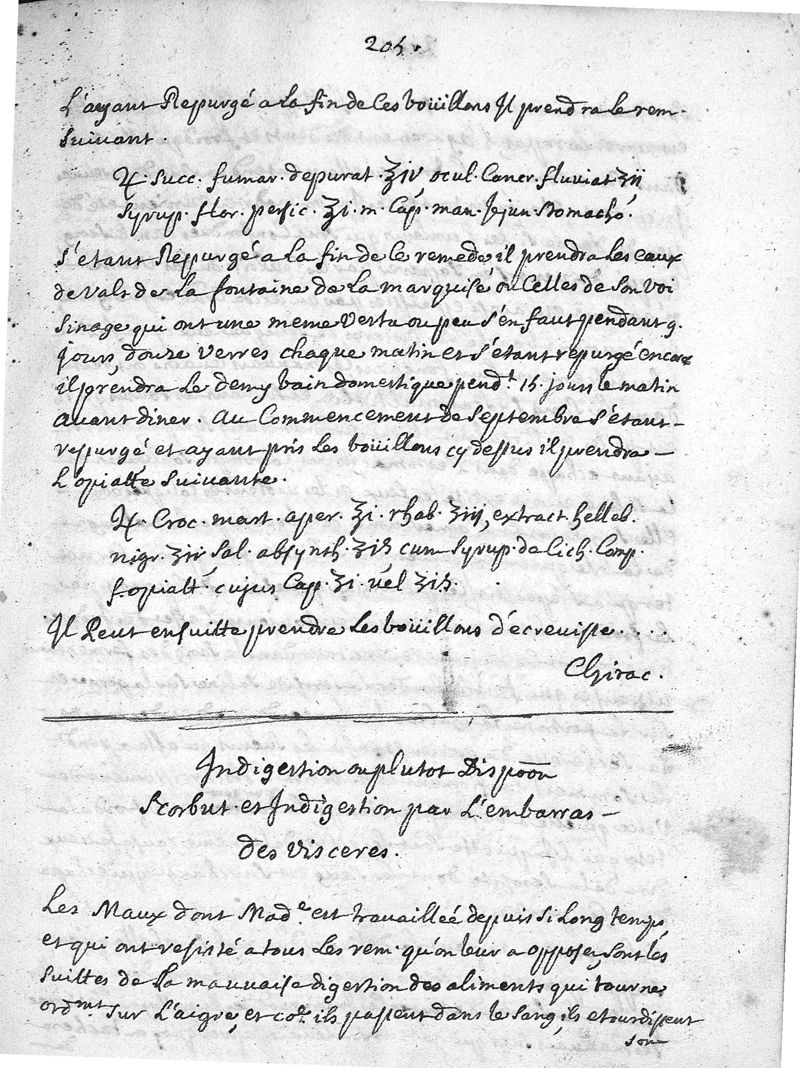 205.
L'ayant Repurgé a La fin de Ces bouillons Il prendra le rem.
Suivant.
♃. Succ. fumar. depurat. ℥iv ocul. Cancr. fluviat
Syrup. flor. persic. ℥i. m. Cap. man. Jejun. Stomacho.
S'etant Repurgé a La fin de Ce remede il prendra Les eaux
de Vals de La fontaine de La marquise ou Celles de Son voi
Sinage qui ont une meme Vertu ou peu s'en faut pendant 9.
jours, douze verres chaque matin et s'étant repurgé encore
il prendra Le demy bain domestique pend.t 15. jours le matin
avant diner. au Commencement de Septembre s'étant
repurgé et ayant pris Les bouillons cy dessus il prendra
L'opiatte Suivante.
♃. Croc. mart. aper. ℥i. rhab. ʒiij, extract. helleb.
nigr. ʒiv Sal. absynth. ʒiß cum Syrup. de Cich. Comp.
f. opiatt. cujus Cap. ʒi. vel ʒiß.
Il Peut ensuitte prendre Les bouillons d'écrevisse.....
Chirac.
Indigestion ou plutot Dispõõn
Scorbut. et Indigestion par L'embarras
des visceres.
Les Maux dont Mad.e est travaillée depuis si Long temps,
et qui ont resisté a tous Les rem. qu'on leur a opposé, sont les
Suittes de La mauvaise digestion des aliments qui tourne
ord.mt sur L'aigre, et co.e ils passent dans le sang, ils etourdissent
son